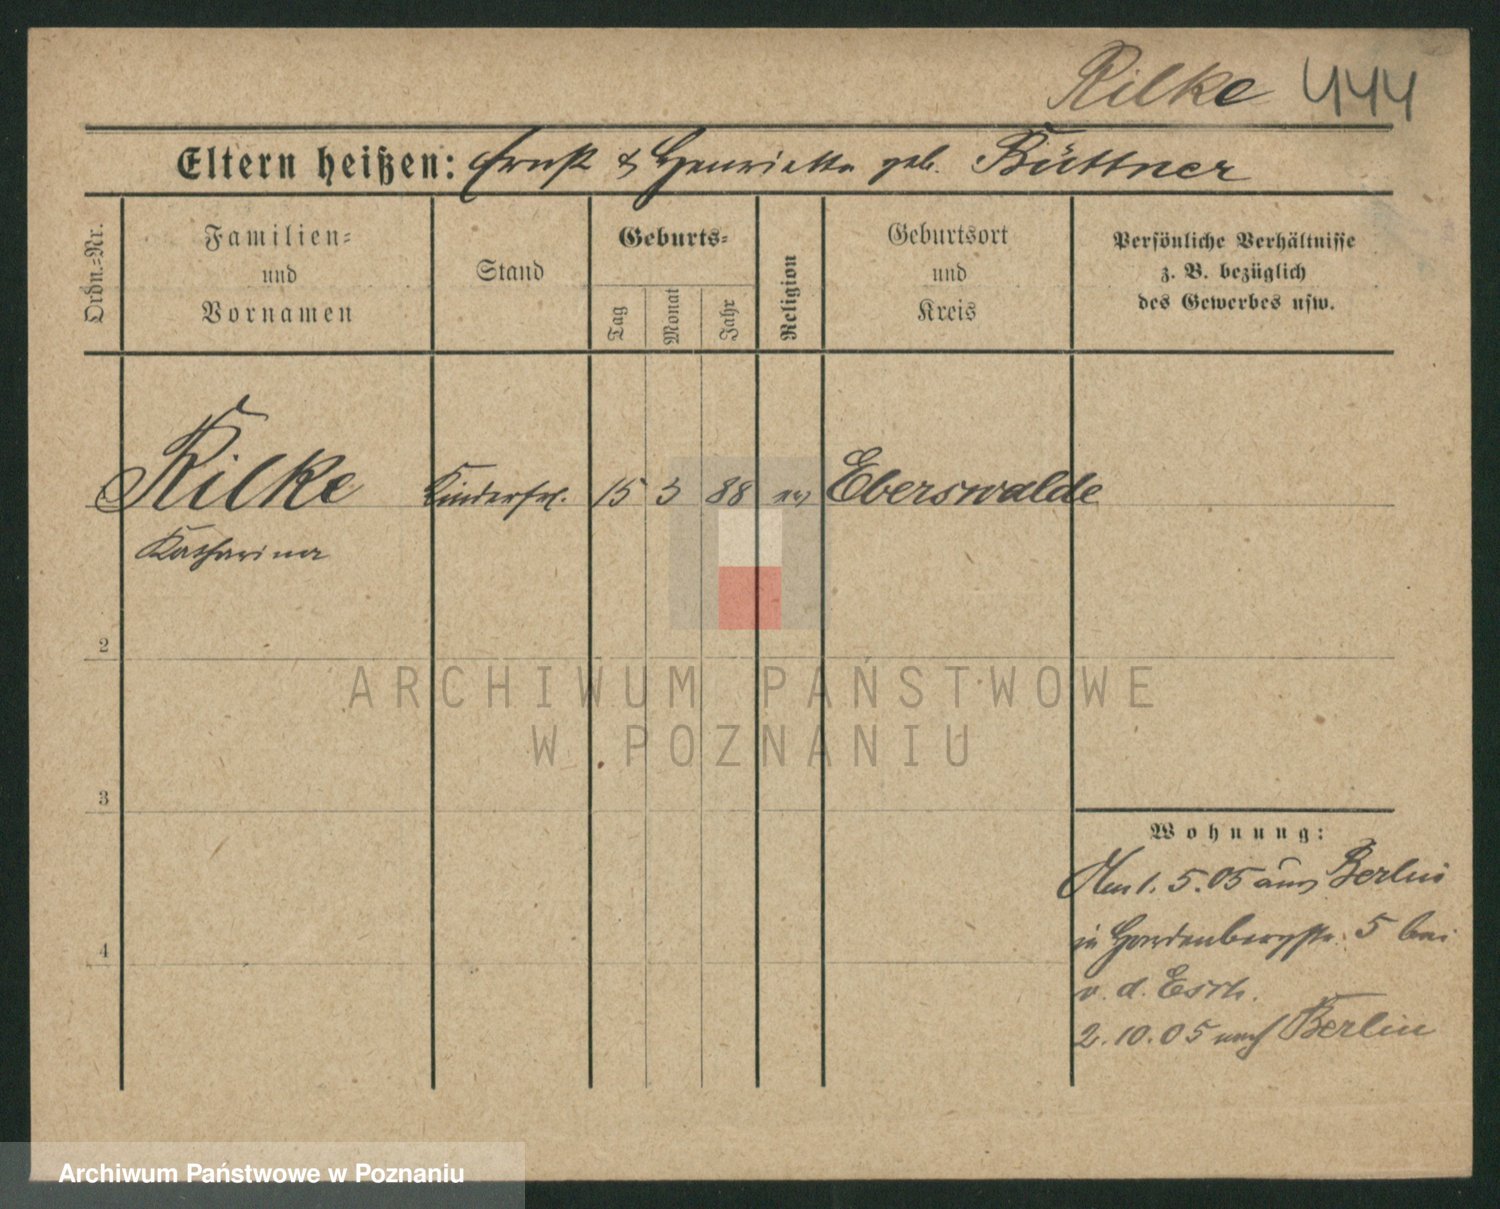 Rilke 444
Eltern heißen: Ernst & Henriette geb. Büttner
Ordn.-Nr.
Familien-
und
Vornamen
Stand
Geburts-
Tag
Monat
Jahr
Religion
Geburtsort
und
Kreis
Persönliche Verhältnisse
z. B. bezüglich
des Gewerbes usw.
Rilke Kinderfrl. 15 3 88 ev Eberswalde
Katharina
2
3
4
Wohnung:
Am 1. 5. 05 aus Berlin
in Hardenbergstr. 5 bei
v. d. Esch.
2. 10. 05 nach Berlin
ARCHIWUM PAŃSTWOWE
W POZNANIU
Archiwum Państwowe w Poznaniu